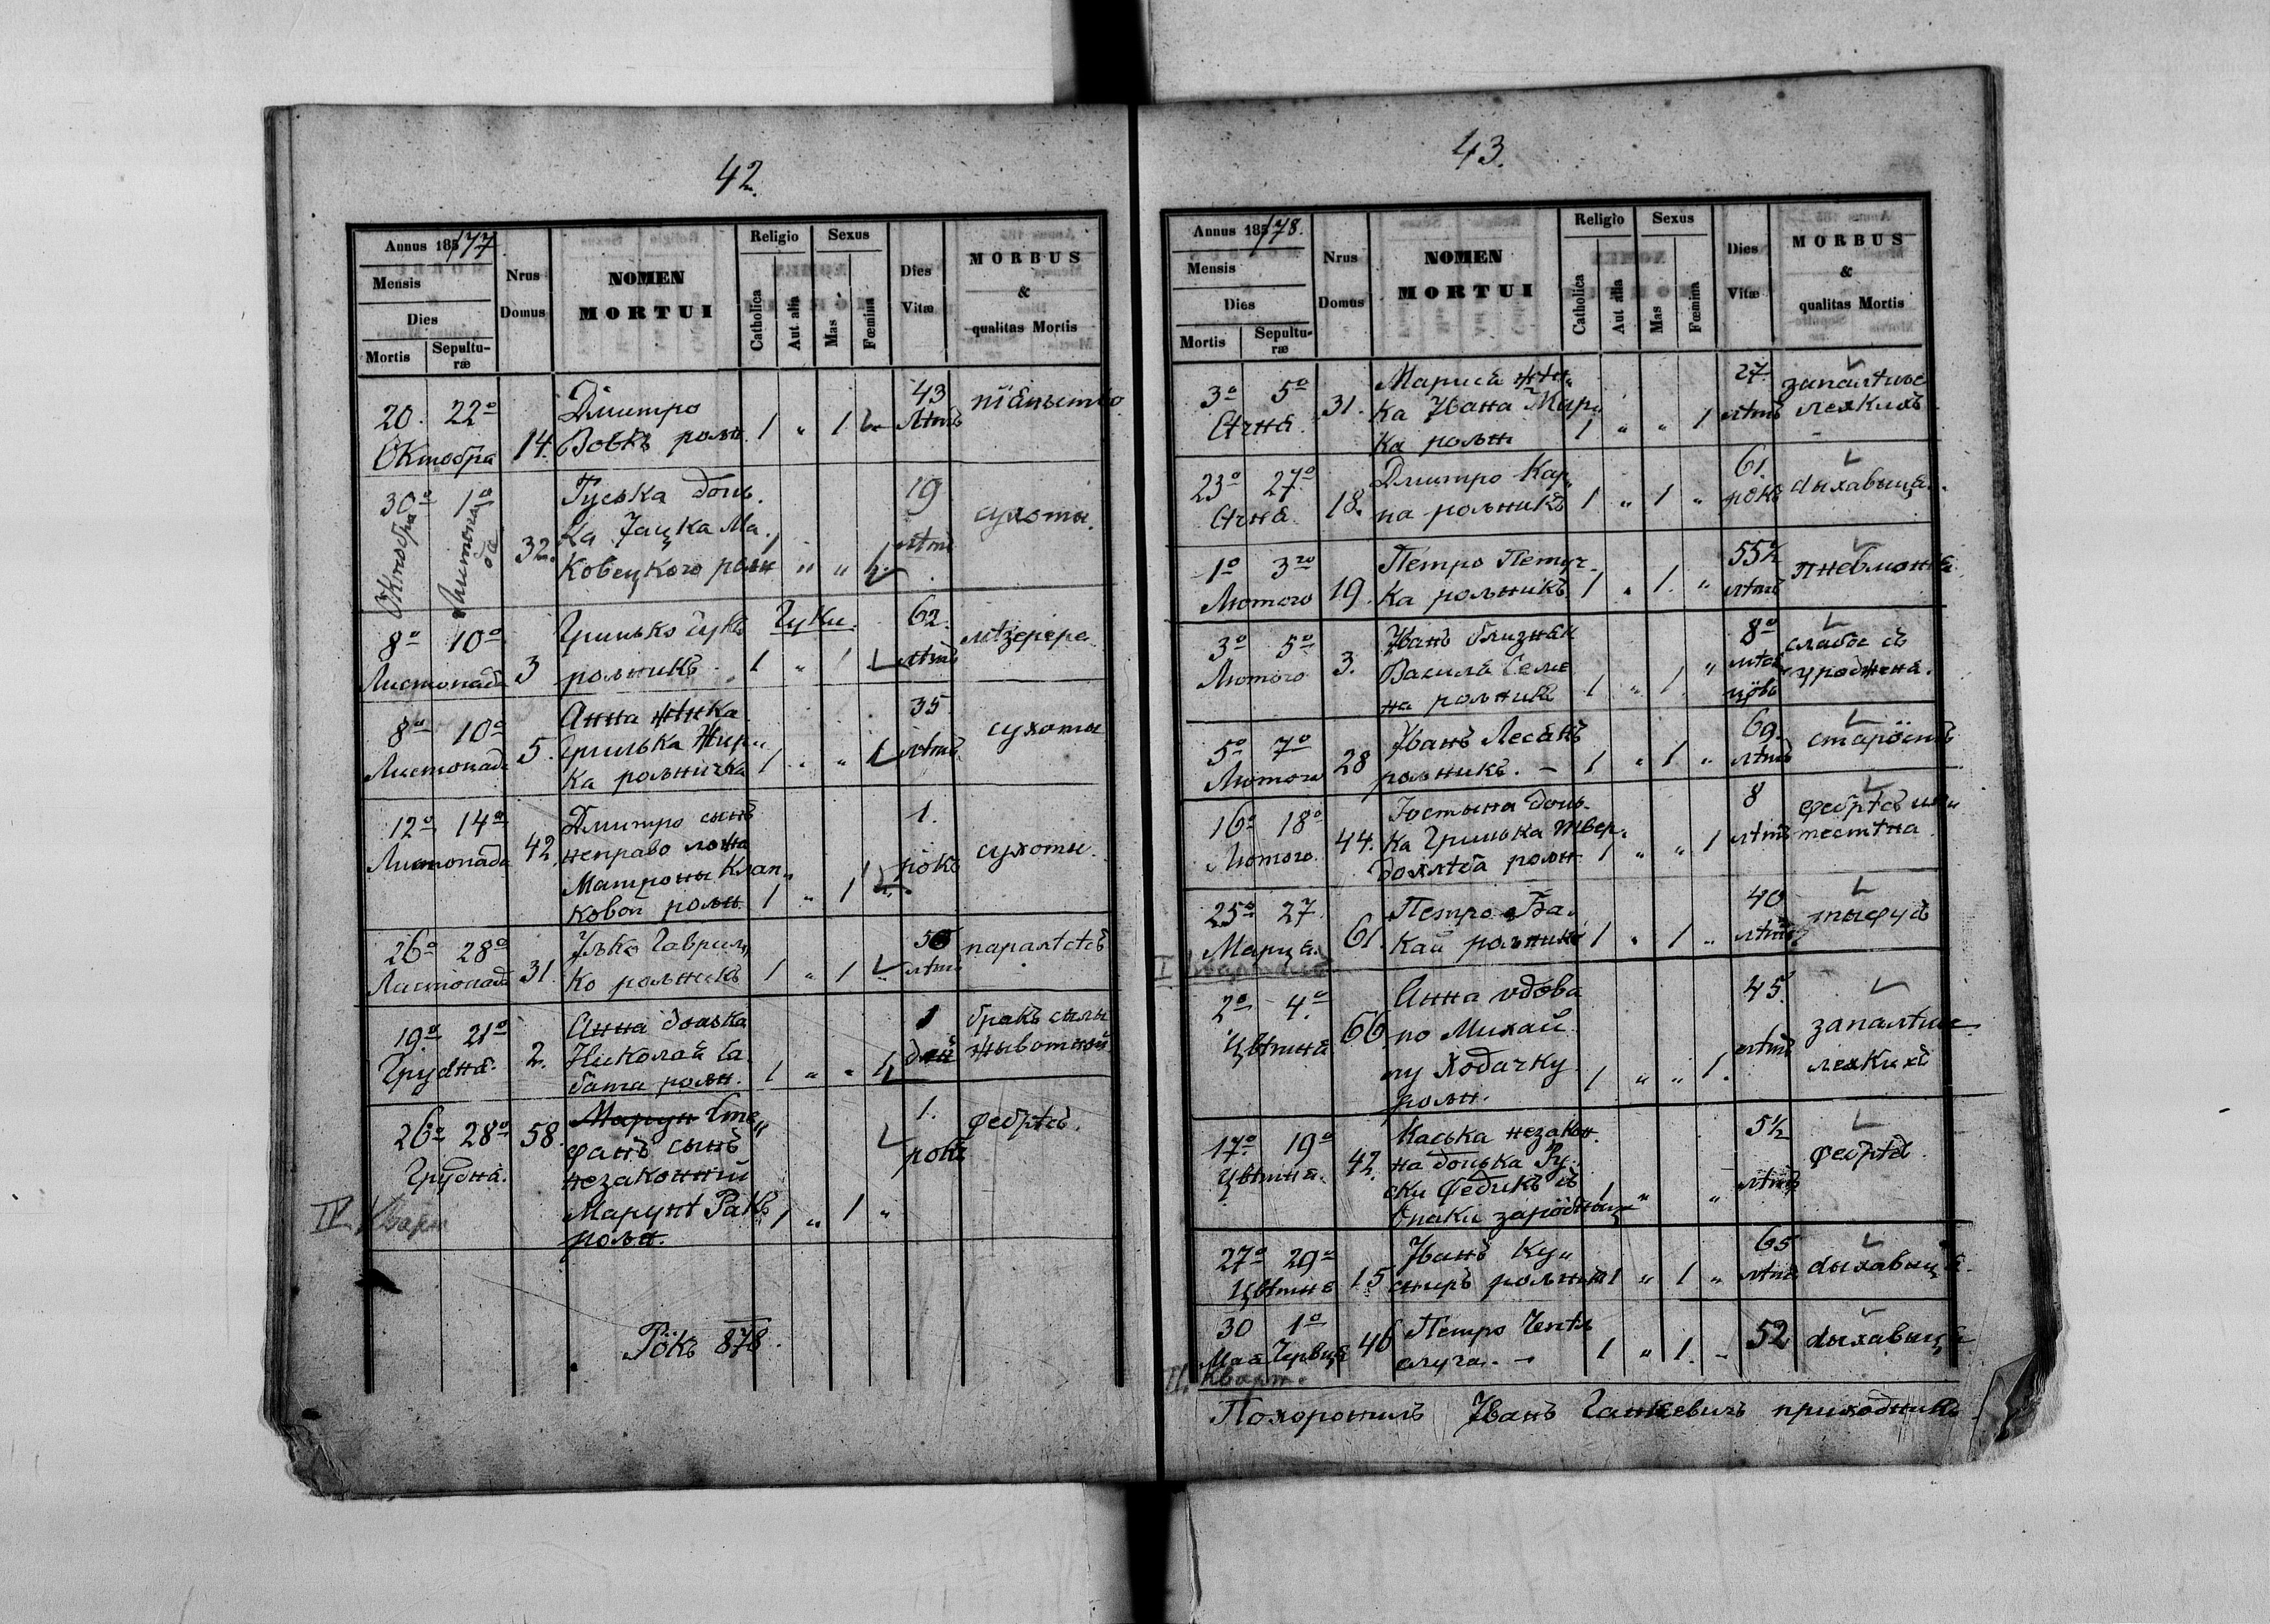 42.
Annus 185/77.
Mensis
Dies
Mortis
Sepultu-
ræ
Nrus
Domus
NOMEN
MORTUI
Religio
Catholica
Aut alia
Sexus
Mas
Fœmina
Dies
Vitæ
MORBUS
&
qualitas Mortis
20. 22º
Октобра
14.
Дмитро
Вовкъ рольн.
1 „ 1
43
лѣтъ
піаньство
30º 1º
Октобра
Листопа
да
32.
Гуська доль.
ка Яцка Ма.
ковецкого рольн
1 „ „ 1.
19
лѣтъ
сухоты.
8º 10º
Листопада
3
Гринько Гукъ
Гуки.
рольникъ
1 „ 1
62.
лѣтъ
8º 10º
Листопада
5.
Анна жѣнка
Грилька Жир„
ка рольничка
1 „ „ 1
35
лѣтъ
сухоты
12º 14º
Листопада
42.
Дмитро сынъ
неправо ложа
Матроны Клап„
ковой рольн.
1 „ 1
1.
рокъ
сухоты.
26º 28º
Листопада
31.
Илько Гаврил„
ко рольникъ
1 „ 1
лѣтъ
паралѣсъ
19º 21º
Грудня.
2.
Анна донька
Николая Са.
бата рольн.
1 „ „ 1
1
дня
бракъ силы
животной
26º 28º
Грудня.
58.
Марун Сте„
фанъ сынъ
незаконный
Марунѣ Ракъ
рольн.
1 „ 1 „
1.
рокъ
фебрѣсъ.
IV. Кварт
Рôкъ 878.
43.
Annus 185/78.
Mensis
Dies
Mortis
Sepultu-
ræ
Nrus
Domus
NOMEN
MORTUI
Religio
Catholica
Aut alia
Sexus
Mas
Fœmina
Dies
Vitæ
MORBUS
&
qualitas Mortis
3º 5º
Сѣчня
31.
Марися жѣн„
ка Ивана Жир„
ка рольн
1 „ „ 1
27
лѣтъ
запалѣніе
легкихъ
23º 27º
Сѣчня.
18.
Дмитро Кар„
па рольникъ
1 „ 1 „
61.
рокъ
дыхавиця.
1º 3го
Лютого
19.
Петро Петри.
ка рольникъ
1 „ 1. „
55½
лѣтъ
пневмонія
3º 5º
Лютого
3.
Иванъ близняк
Василя Семе
на рольника
1 „ 1 „
8º
мѣся
цôвъ
слабос съ
уродженя.
5º 7º
Лютого
28
Иванъ Лесякъ
рольникъ. –
1 „ 1 „
69.
лѣтъ
старôсть
16º 18º
Лютого.
44.
Юстына донь-
ка Грилька Твер„
дохлѣба рольн
1 „ „ 1
8
лѣтъ
фебрѣсъ ин„
тестина
25º 27
Марця.
61.
Петро Ба„
кай рольникъ
1 „ 1 „
40
лѣтъ
тыфусъ
I Квартал
2º 4º
Цвѣтня
66
Анна вдова
по Михай
лу Ходачку
рольн.
1 „ „ 1.
45.
лѣтъ
запалѣніе
легкихъ
17º 19º
Цвѣтня.
42.
Каська незакон.
на донька Ру„
ски Федикъ съ
Опаки зарôбниц
1 „ „
5½
лѣтъ
фебрѣсъ.
27º 29º
Цвѣтня
15
Иванъ Ку„
снеръ рольникъ
1 „ 1 „
65
лѣтъ
дыхавиця.
30 1º
Мая Червця
46
слуга. –
1 „ 1. –
52
дыхавиця
II. Кварт.
Похоронилъ Иванъ Ганкевичъ приходникъ